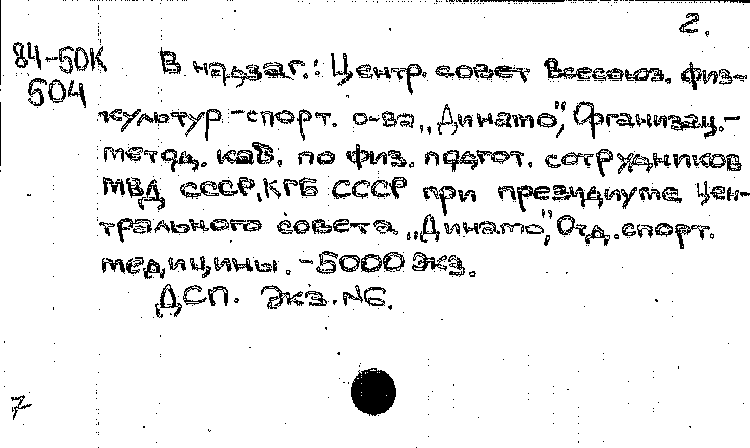 2.
84-50К
504
В надзаг.: Центр. совет Всесоюз. физ-
культур-спорт. о-ва „Динамо", Организац.-
метод. каб. по физ. подгот. сотрудников
МВД СССР, КГБ СССР при президиуме Цен-
трального совета „Динамо", Отд. спорт.
медицины. - 5000 экз.
ДСП. Экз. №6.
7